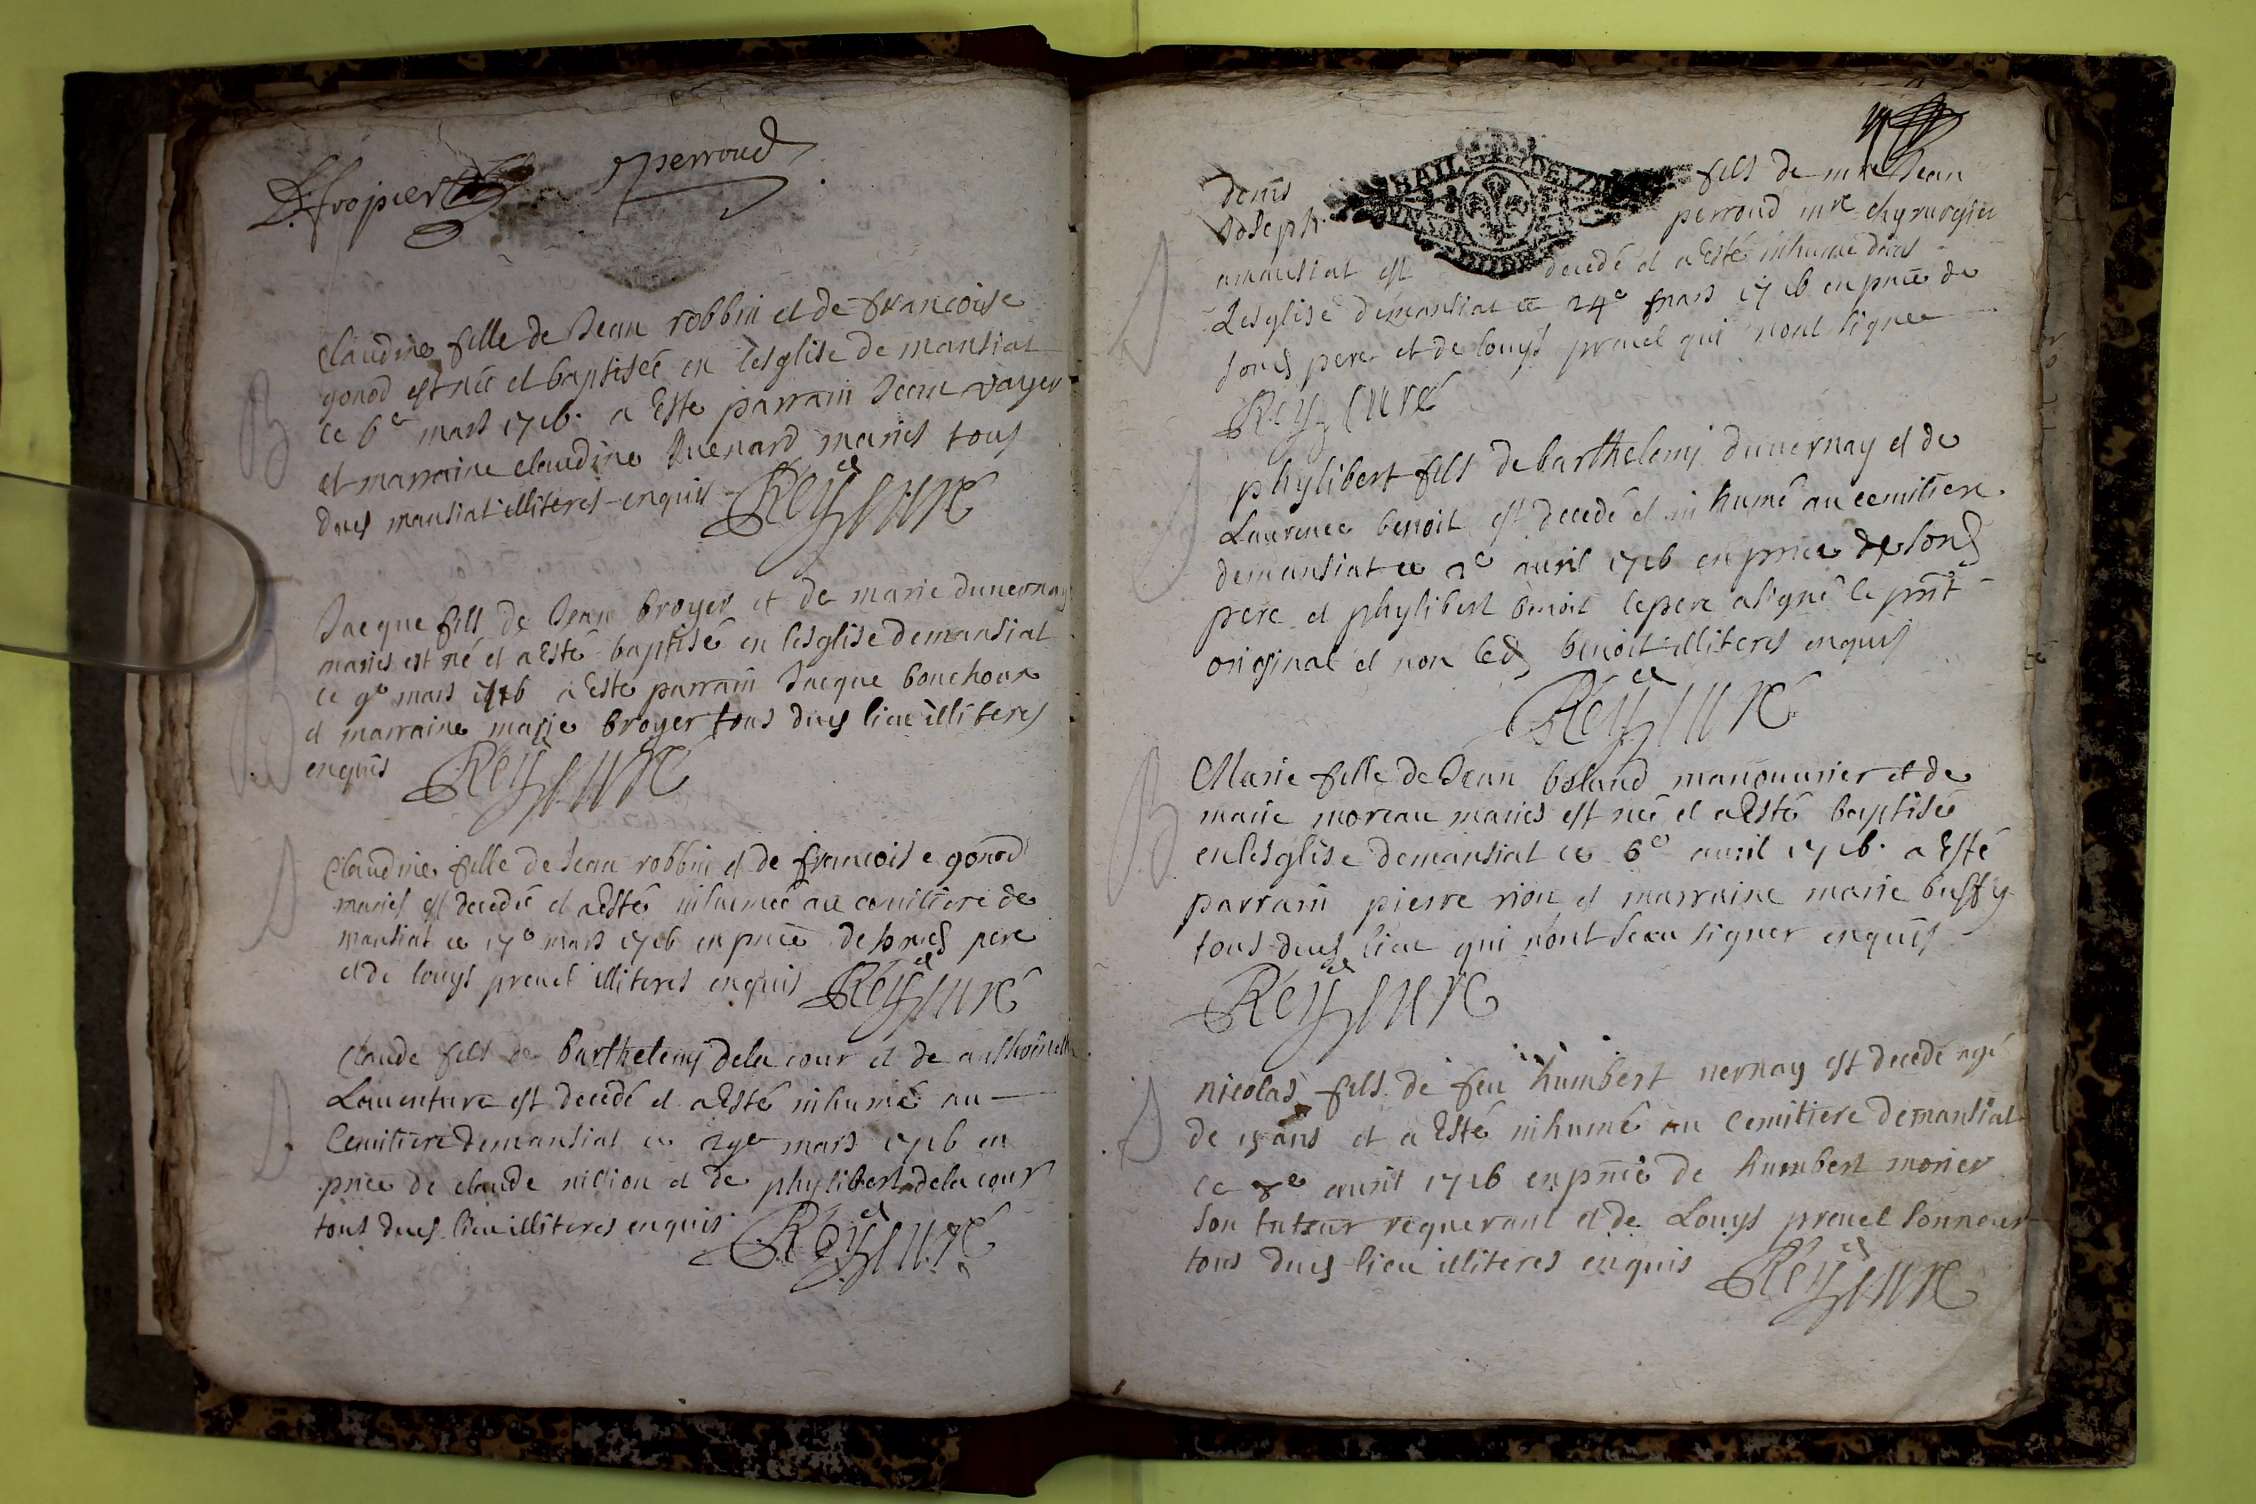 D. fropier perroud
B
Claudine fille de Jean robbin et de francoise
gonod est née et baptisée en lesglise de mansiat
ce 6e mars 1716 a este parrain Jean vayer
et marraine claudine Quenard mariés tous
duds mansiat illiteres enquis
Rey curé
B
Jacque fils de Jean broyer et de marie duvernay
mariés est né et a esté baptisé en lesglise demansiat
ce 9e mars 1716 a este parrain Jacque bouchoux
et marraine marie broyer tous duds lieu illiteres
enquis Rey curé
Claudine fille de Jean robbin et de francoise gonod
mariés est decedée et a esté inhumée au cemitiere de
mansiat ce 17e mars 1716 en pnce de sond pere
et de louys prevel illiteres enquis Rey curé
Claude fils de barthelemj dela cour et de
Laventure est decedé et a esté inhumé au
Cemitiere demansiat ce 29e mars 1716 en
pnce de claude et de phylibert dela cour
tous duds lieu illiteres enquis Rey curé
denis fils de mre Jean
Joseph perroud mre chyrurgien
amansiat est decedé et a esté inhumé dans
Lesglise demansiat ce 24e mars 1716 en pnce de
sond pere et de louys prevel qui nont signe
Rey curé
phylibert fils de barthelemj duvernay et de
Laurence benoit est decedé et inhumé au cemitiere
demansiat ce 2e avril 1716 en pnce de sond
pere et phylibert benoit le pere a signé le pnt
original et non led benoit illiteres enquis
Rey curé
B
Marie fille de Jean boland manouvrier et de
marie moreau mariés est née et a esté baptisée
en lesglise demansiat ce 6e avril 1716 a esté
parrain pierre riou et marraine marie buffy
tous duds lieu qui nont sceu signer enquis
Rey curé
nicolas fils de feu humbert vernay est decedé agé
de 15 ans et a esté inhumé au Cemitiere demansiat
ce 8e avril 1716 en pnce de humbert morier
son tuteur requerant et de Louys prevel sonneur
tous duds lieu illiteres enquis Rey curé